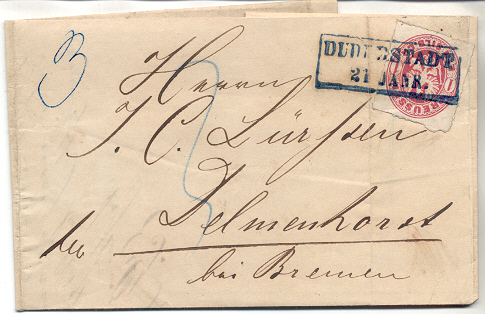 3
DUDERSTADT
21 JAN.
1
PREUSS
Herrn
J. C. Lürssen
3
Delmenhorst
bei Bremen